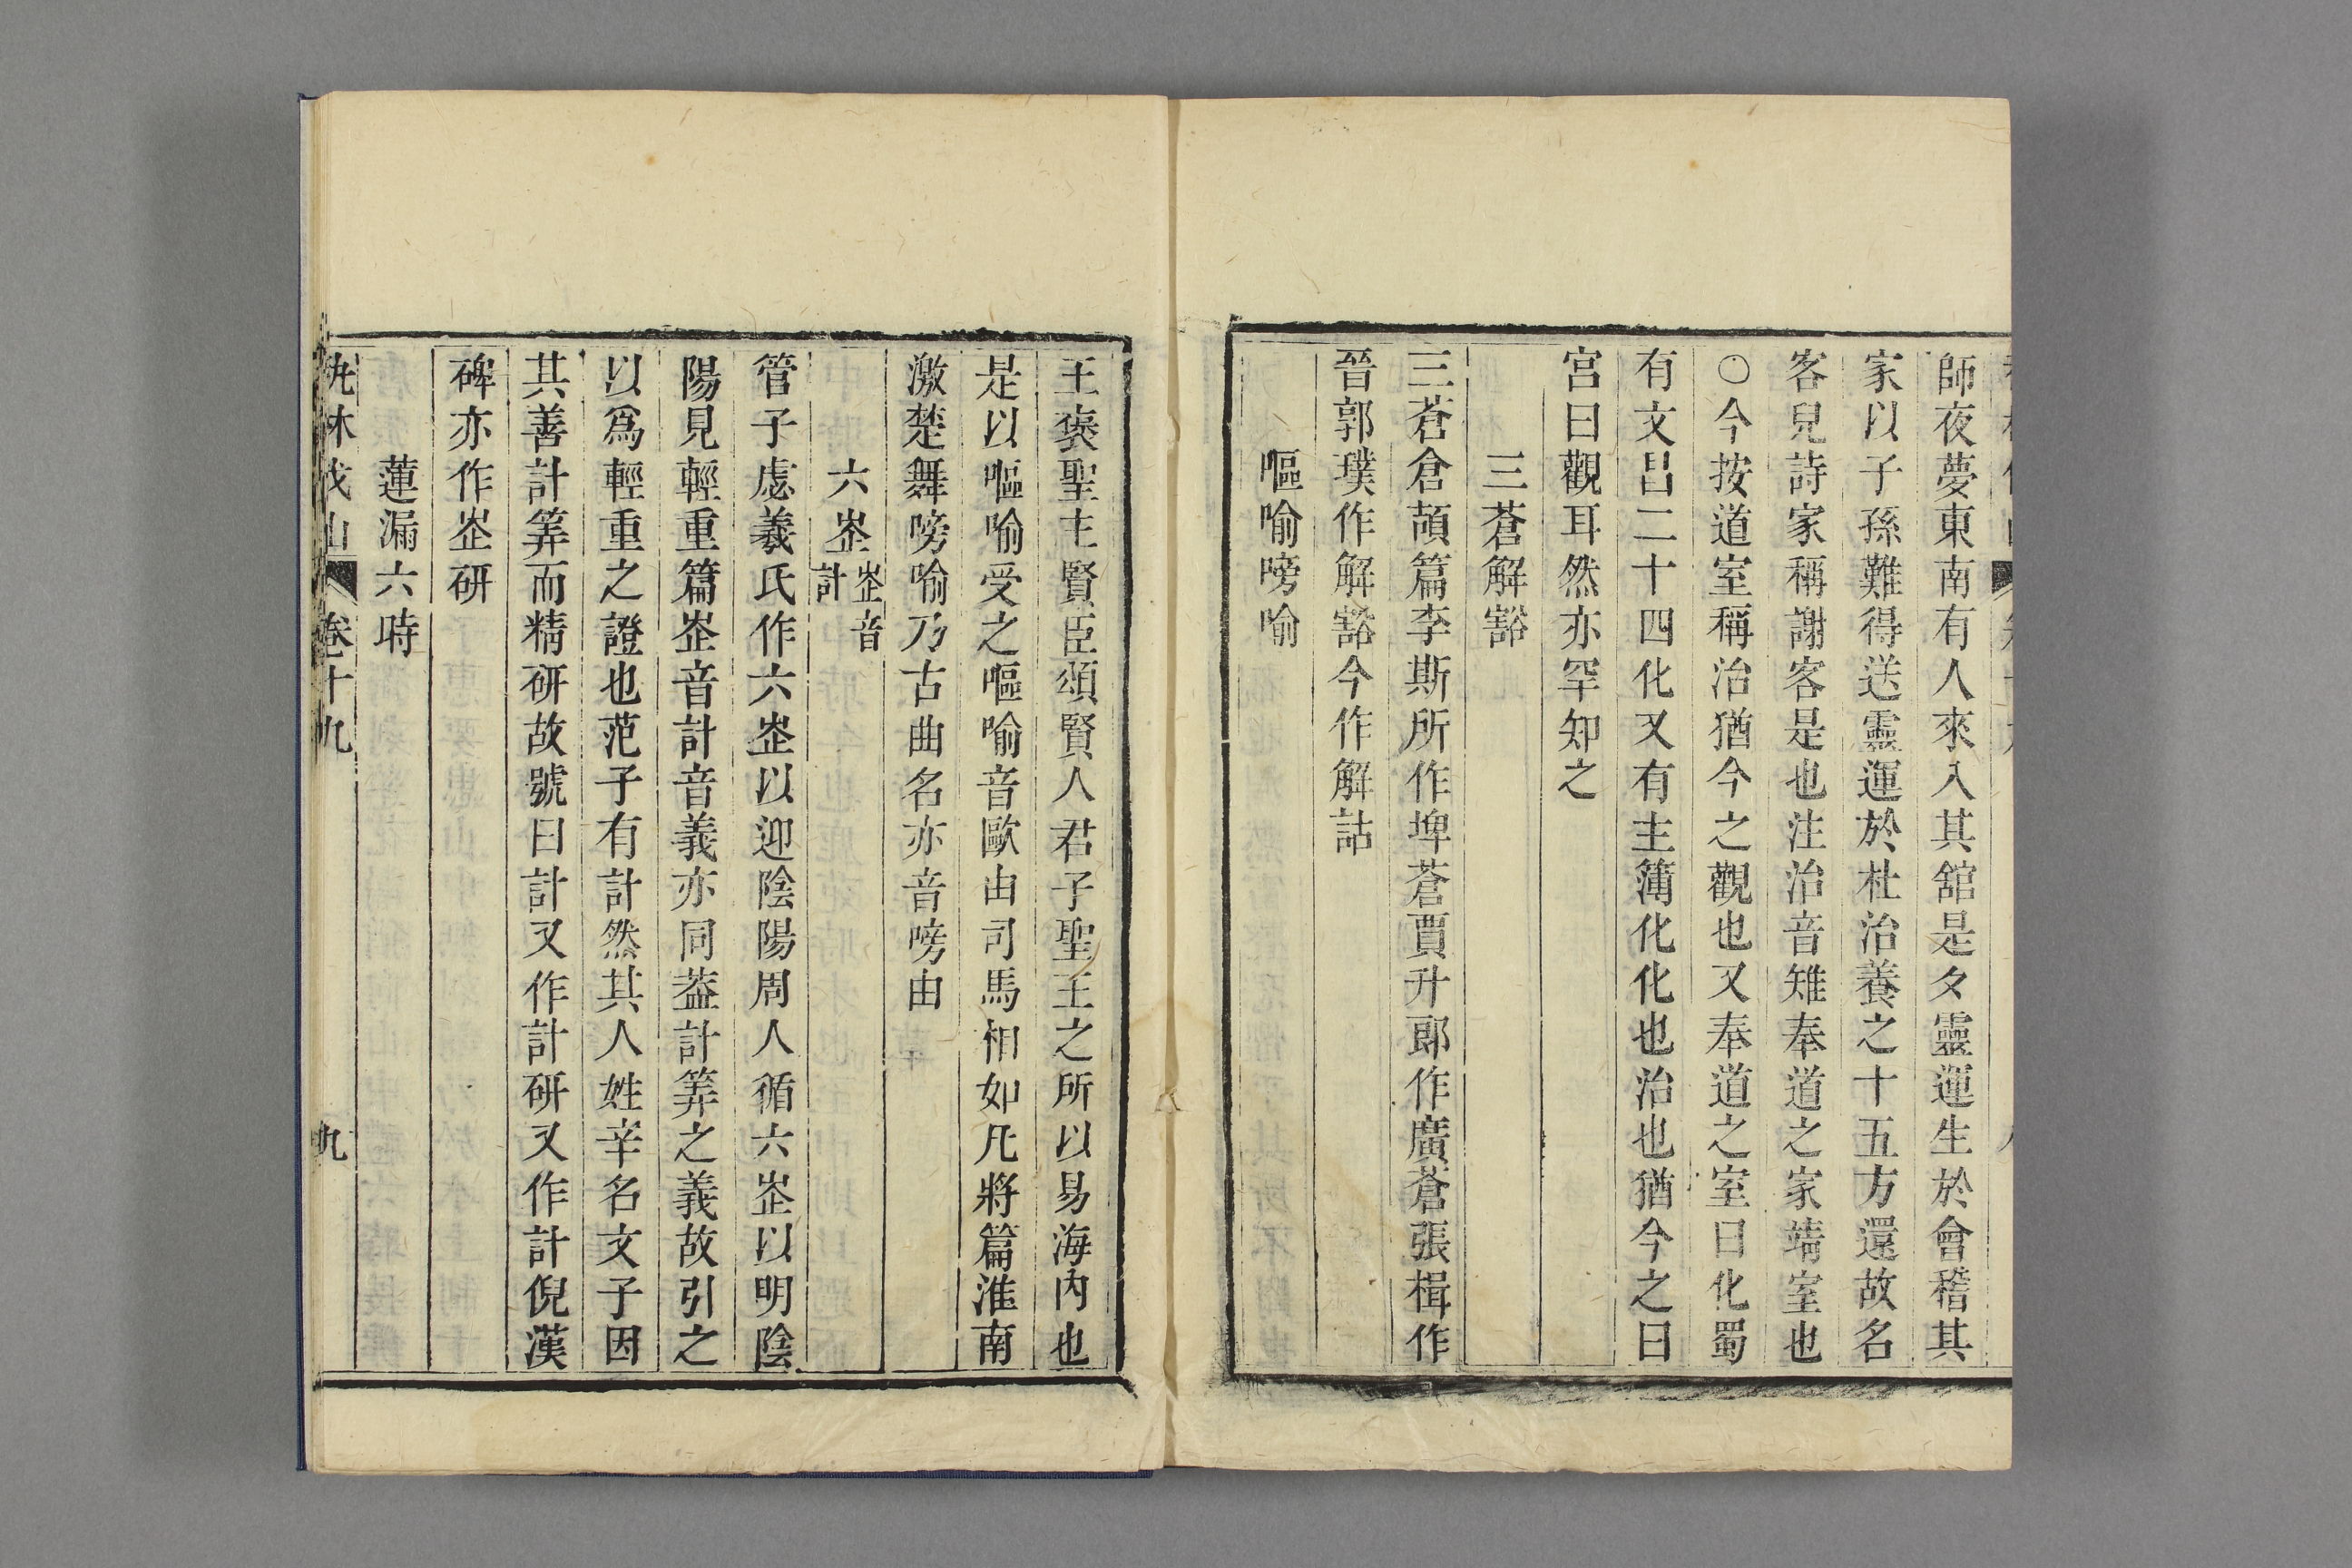 師夜夢東南有人來入其舘是夕靈運生於會稽其
家以子孫難得送靈運於杜治養之十五方還故名
客兒詩家稱謝客是也注治音雉奉道之家靖室也
○今按道室稱治猶今之觀也又奉道之室曰化蜀
有文昌二十四化又有主簿化化也治也猶今之曰
宮曰觀耳然亦罕知之
三蒼解豁
三蒼倉頡篇李斯所作埤蒼賈升郎作廣蒼張楫作
晉郭璞作解豁今作解詁
嘔喻嗙喻
王褒聖主賢臣頌賢人君子聖王之所以易海内也
是以嘔喻受之嘔喻音歐由司馬相如凡將篇淮南
激楚舞嗙喻乃古曲名亦音嗙由
六峜峜音計
管子虙羲氏作六峜以迎陰陽周人循六峜以明陰
陽見輕重篇峜音計音義亦同葢計筭之義故引之
以爲輕重之證也范子有計然其人姓辛名文子因
其善計筭而精研故號曰計又作計研又作計倪漢
碑亦作峜研
蓮漏六時
卷十九
九